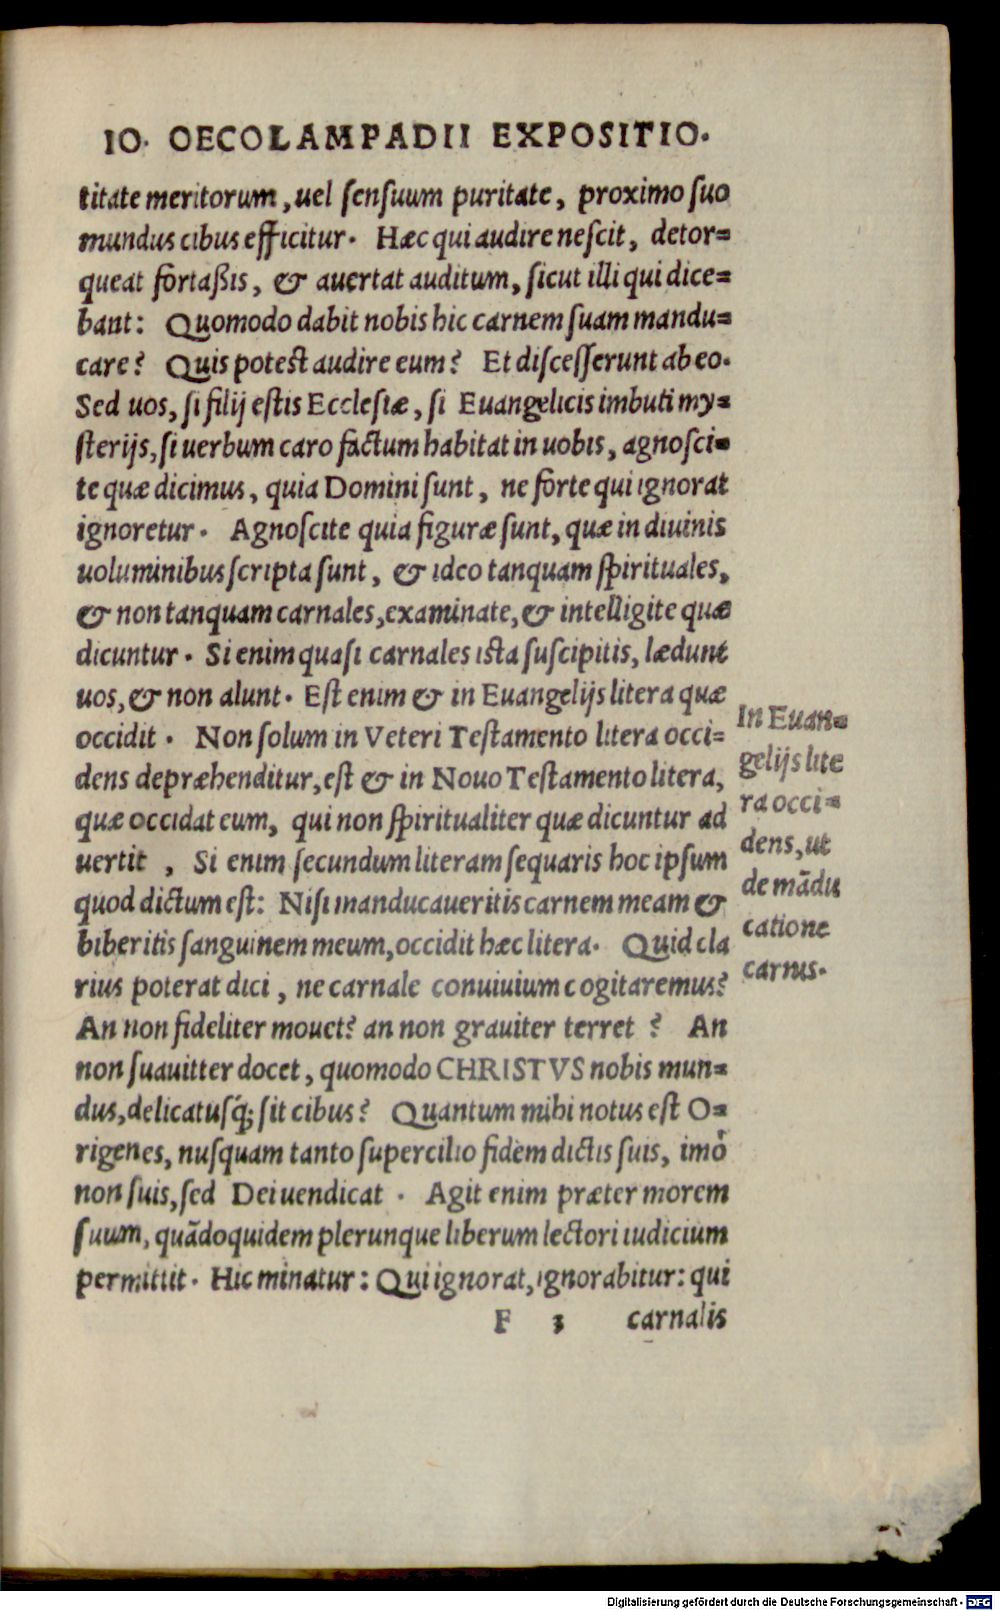 IO. OECOLAMPADII EXPOSITIO.
titate meritorum, uel sensuum puritate, proximo suo
mundus cibus efficitur. Hæc qui audire nescit, detor=
queat fortaßis, & auertat auditum, sicut illi qui dice=
bant: Quomodo dabit nobis hic carnem suam mandu=
care? Quis potest audire eum? Et discesserunt ab eo.
Sed uos, si filij estis Ecclesiæ, si Euangelicis imbuti my=
sterijs, si uerbum caro factum habitat in uobis, agnosci=
te quæ dicimus, quia Domini sunt, ne forte qui ignorat
ignoretur. Agnoscite quia figuræ sunt, quæ in diuinis
uoluminibus scripta sunt, & ideo tanquam spirituales,
& non tanquam carnales, examinate, & intelligite quæ
dicuntur. Si enim quasi carnales ista suscipitis, lædunt
uos, & non alunt. Est enim & in Euangelijs litera quæ
occidit. Non solum in Veteri Testamento litera occi=
dens depræhenditur, est & in Nouo Testamento litera,
quæ occidat eum, qui non spiritualiter quæ dicuntur ad
uertit, Si enim secundum literam sequaris hoc ipsum
quod dictum est: Nisi manducaueritis carnem meam &
biberitis sanguinem meum, occidit hæc litera. Quid cla
rius poterat dici, ne carnale conuiuium cogitaremus?
An non fideliter mouet? an non grauiter terret? An
non suauitter docet, quomodo CHRISTVS nobis mun=
dus, delicatusq́; sit cibus? Quantum mihi notus est O=
rigenes, nusquam tanto supercilio fidem dictis suis, imò
non suis, sed Dei uendicat. Agit enim præter morem
suum, quãdoquidem plerunque liberum lectori iudicium
permittit. Hic minatur: Qui ignorat, ignorabitur: qui
F 3 carnalis
In Euan=
gelijs lite
ra occi=
dens, ut
de mãdu
catione
carnis.
Digitalisierung gefördert durch die Deutsche Forschungsgemeinschaft - DFG